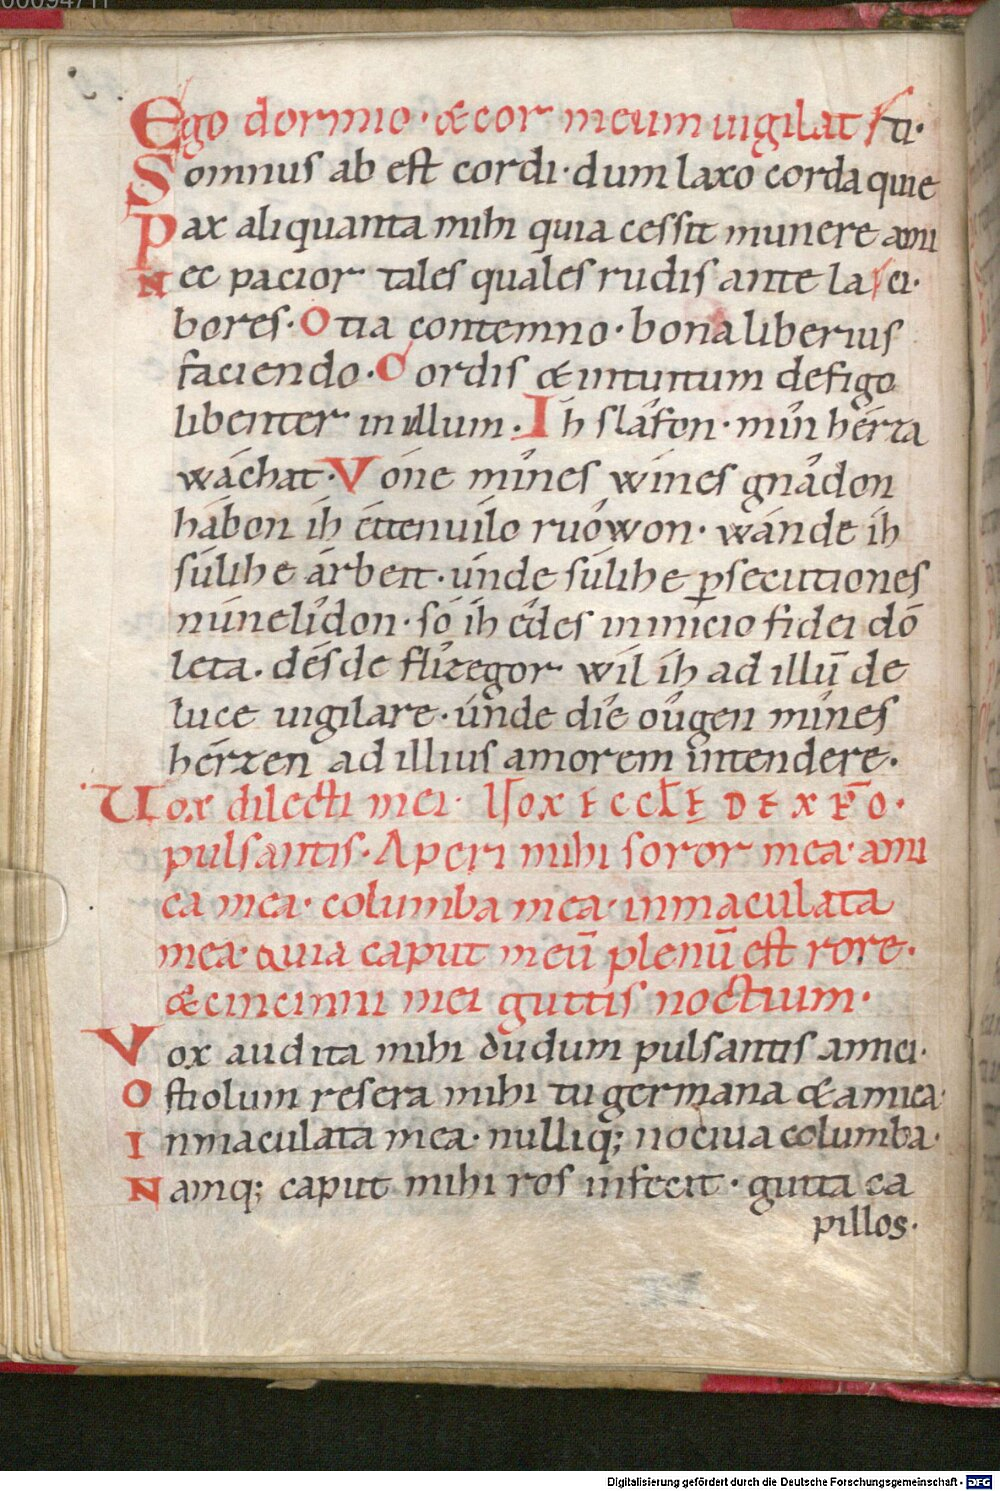 Ego dormio · & cor meum uigilat / ti·
Somnus ab est cordi · dum laxo corda quie
Pax aliquanta mihi quia cessit munere ami
Nec pacior tales quales rudis ante la / ci·
bores · Otia contemno · bona liberius
faciendo · Cordis & intuitum defigo
libenter in illum · Ih slâfon · mîn hérza
wáchat · Vone mînes wínes gnâdon
hábon ih éttenuilo ruówon · wánde ih
súlihe árbeit · únde súlihe ꝑsecutiones
núnelîdon · só ih é́des inimicio fidei dō
leta · désde flîzegor wíl ih ad illū de
luce uigilare · únde díe oúgen mînes
hérzen ad illius amorem intendere ·
Uox dilecti mei · Uox eccłę de xp̄o ·
pulsantis · Aperi mihi soror mea · ami
ca mea · columba mea · inmaculata
mea · quia caput meū plenū est rore ·
& cincinni mei guttis noctium ·
Vox audita mihi dudum pulsantis amici ·
Ostiolum resera mihi tu germana & amica ·
Inmaculata mea · nulliq; nociua columba ·
Namq; caput mihi ros infecit · gutta ca
pillos ·
Digitalisierung gefördert durch die Deutsche Forschungsgemeinschaft - DFG